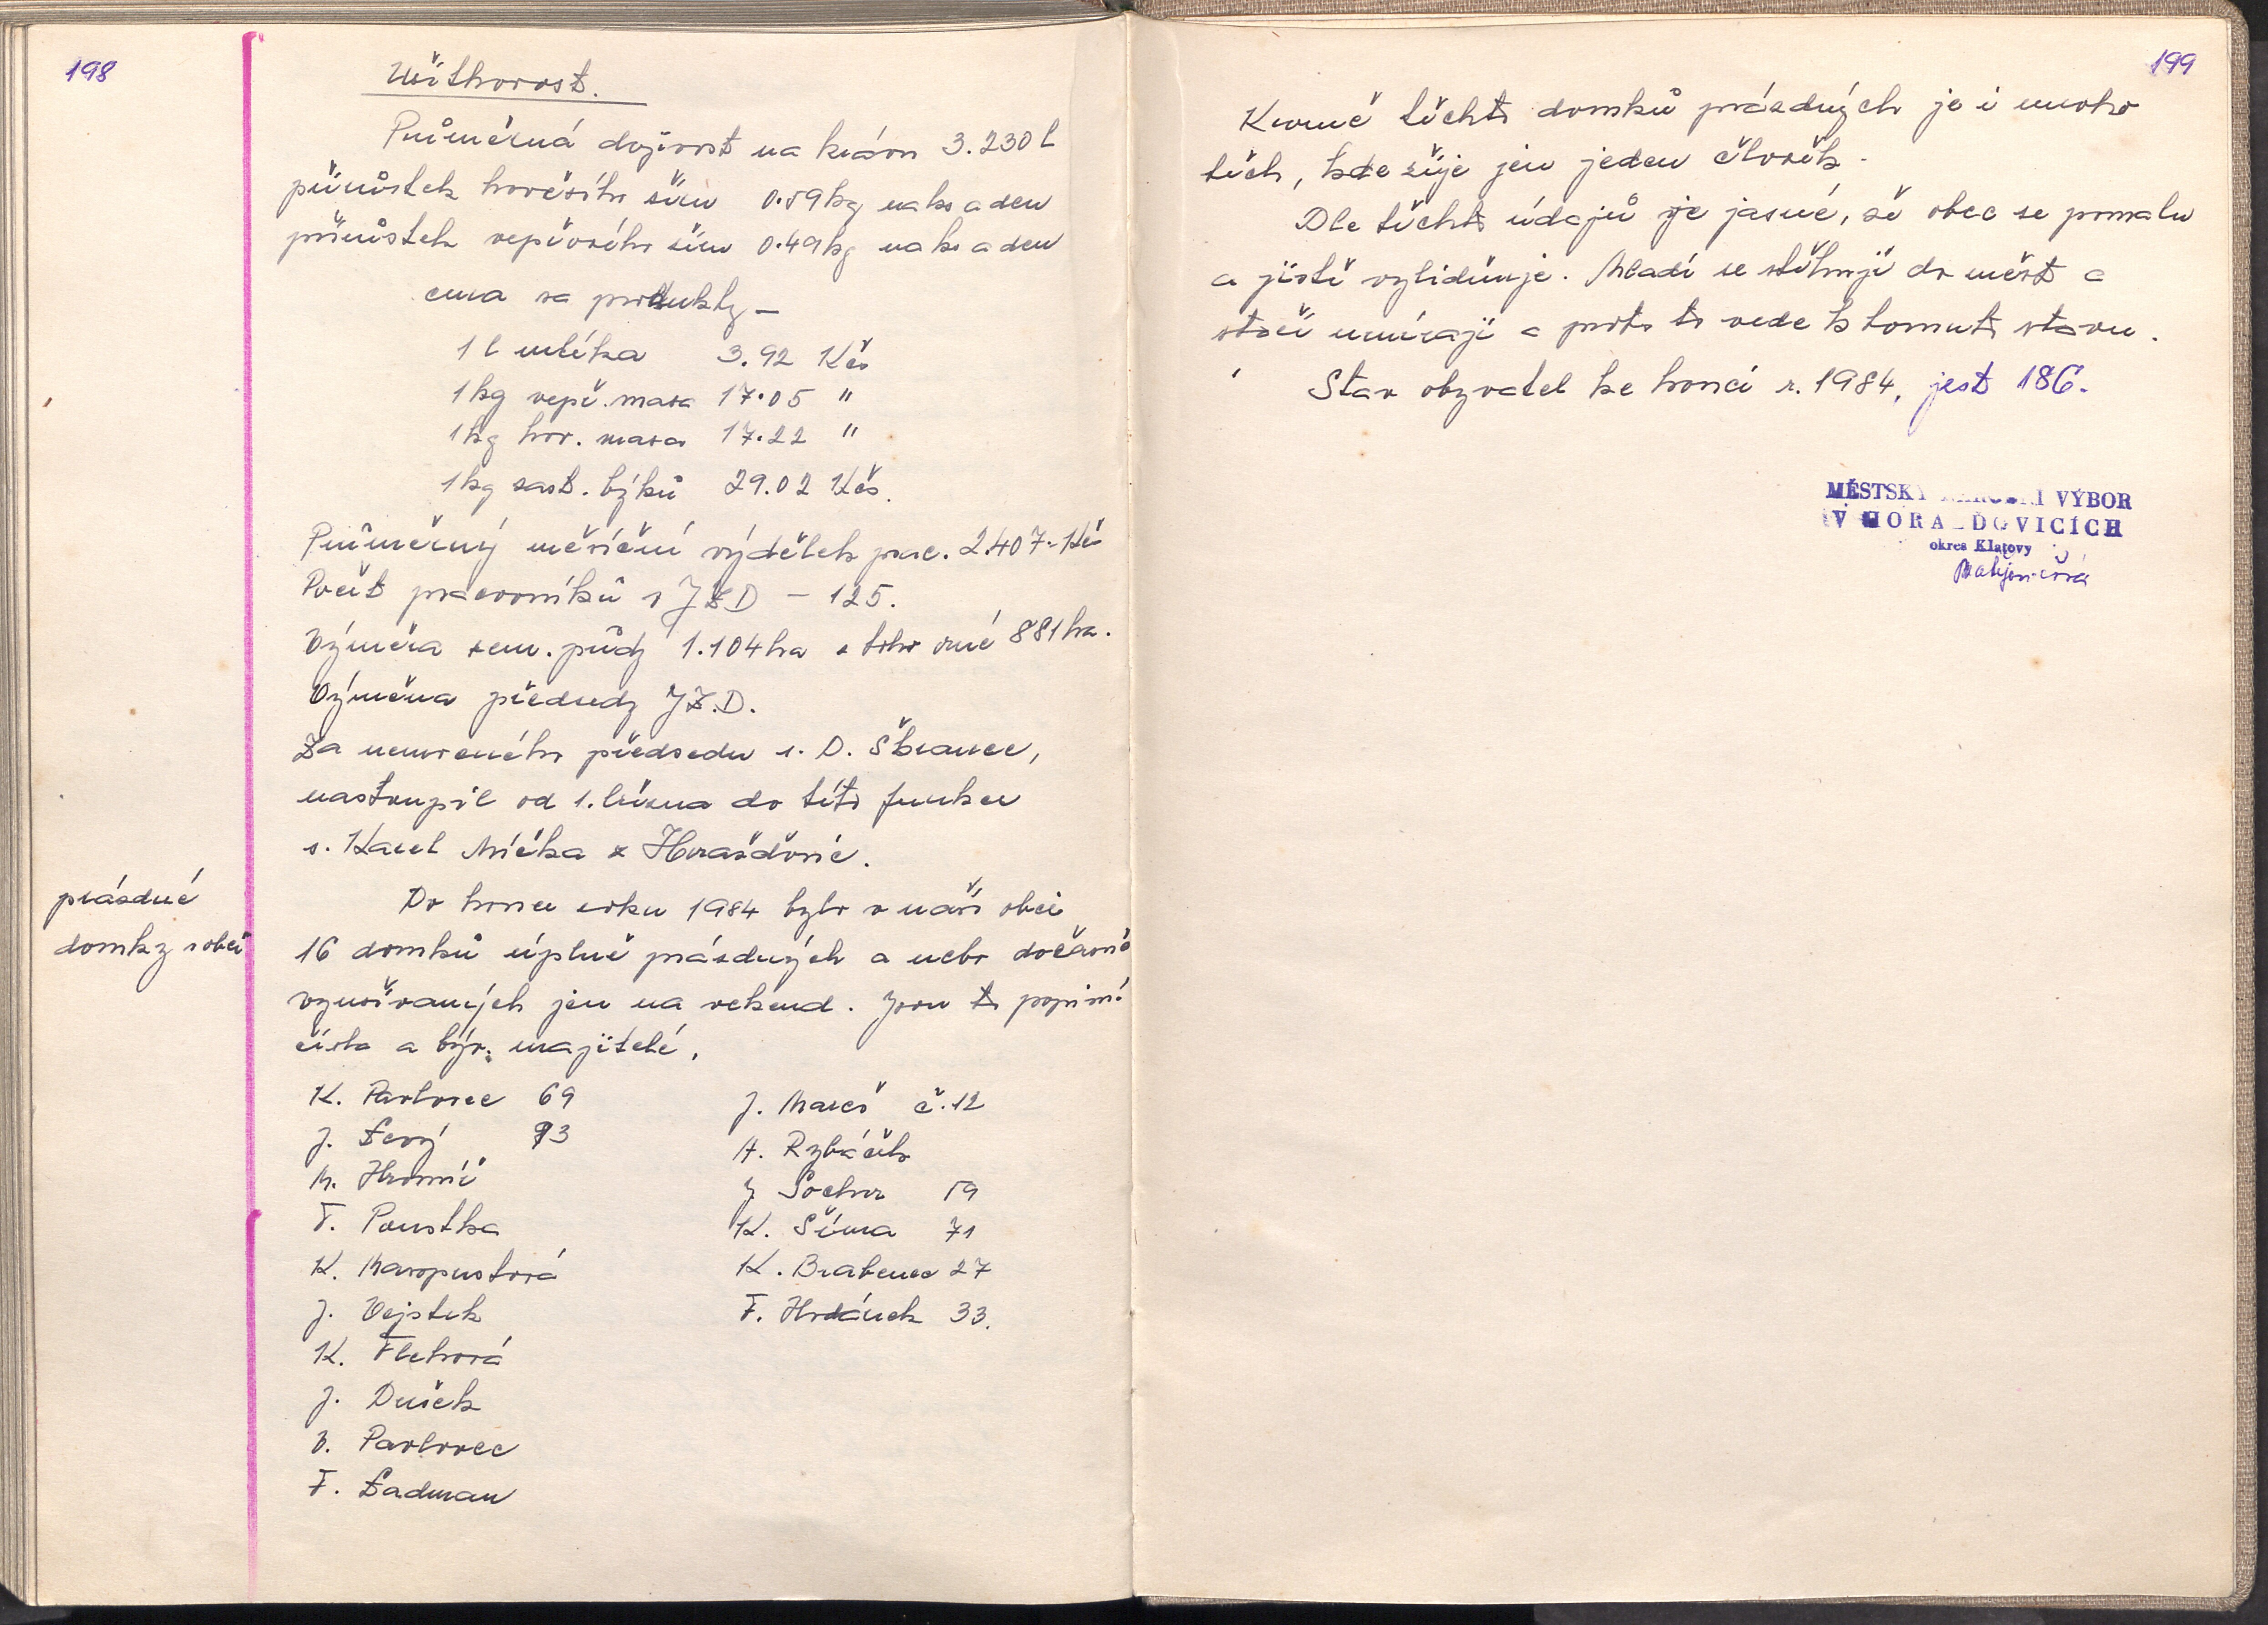 198
Užitkovost.
Průměrná dojivost na krávu 3.230 l
přírůstek hovězího žíru 0.59 kg na ks a den
přírůstek vepřového žíru 0.49 kg na ks a den
cena za produkty —
1 l mléka 3.92 Kčs
1 kg vepř. masa 17.05 "
1 kg hov. masa 17.22 "
1 kg zast. býků 29.02 Kčs.
Průměrný měsíční výdělek prac. 2.407.- Kčs
Počet pracovníků v JZD – 125.
Výměra zem. půdy 1.104 ha z toho orné 881 ha.
Výměna předsedy JZ.D.
Za nemocného předsedu s. D. Škrance,
nastoupil od 1. března do této funkce
s. Karel Mička z Horažďovic.
prázdné
domky v obci
Do konce roku 1984 bylo v naší obci
16 domků úplně prázdných a nebo dočasně
využívaných jen na vekend. Jsou to popisné
čísla a býv. majitelé.
K. Pavlovec 69
J. Levý 93
M. Hromíř
F. Poustka
K. Masopustová
J. Vejstek
K. Flehová
J. Dušek
V. Pavlovec
F. Ladman
J. Mareš č. 12
A. Rybáček
J. Sochor 59
K. Šíma 71
K. Brabenec 27
F. Hrdánek 33.
199
Kromě těchto domků prázdných je i mnoho
těch, kde žije jen jeden člověk.
Dle těchto údajů je jasné, že obec se pomalu
a jistě vylidňuje. Mladí se stěhují do měst a
staří umírají a proto to vede k tomuto stavu.
Stav obyvatel ke konci r. 1984, jest 186.
MĚSTSKÝ NÁRODNÍ VÝBOR
V HORAŽĎOVICÍCH
okres Klatovy